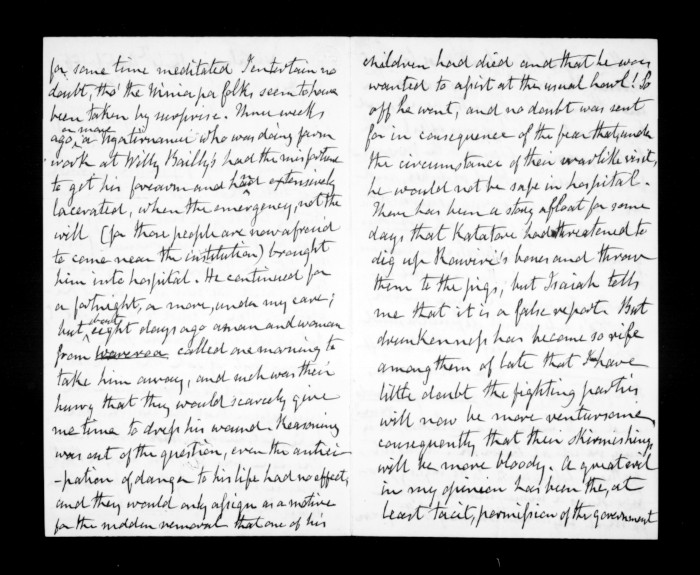 for some time meditated I entertain no
doubt, tho' the Winia pa folk, seem to have
been taken by surprise. Three weeks
ago, or more a Ngatiruanui who was doing farm
work at Willy Bailly's had the misfortune
to get his forearm and hand extensively
lacerated, when the emergency, not the
will (for those people are now afraid
to come near the institution) brought
him into hospital. He continued for
a fortnight, or more, under my care;
but about eight days ago a man and woman
from called one morning to
take him away, and such was their
hurry that they would scarcely give
me time to dress his wound. Reasoning
was out of the question, even the antici
-pation of danger to his life had no effect,
and they would only assign as a motive
for the sudden removal that one of his
children had died and that he was
wanted to assist at the usual howl! So
off he went, and no doubt was sent
for in consequence of the fear that, under
the circumstance of their warlike visit,
he would not be safe in hospital.
There has been a story afloat for some
days that Katatore had threatened to
dig up Rawiri's bones and throw
them to the pigs; but Isaiah tells
me that it is a false report. But
drunkenness has become so rife
among them of late that I have
little doubt the fighting parties
will now be more venturesome,
consequently that their skirmishing
will be more bloody. A great evil
in my opinion has been the, at
least tacit, permission of the Government